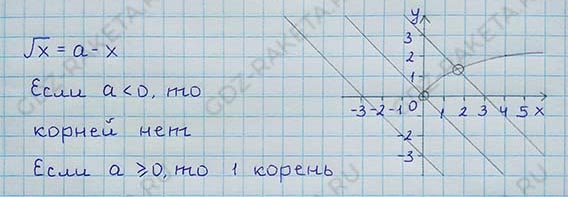 √x = a - x
Если a < 0, то
корней нет
Если a ⩾ 0, то 1 корень
y
3
2
1
-3 -2 -1 0 1 2 3 4 5 x
-2
-3
GDZ-RAKETA.RU